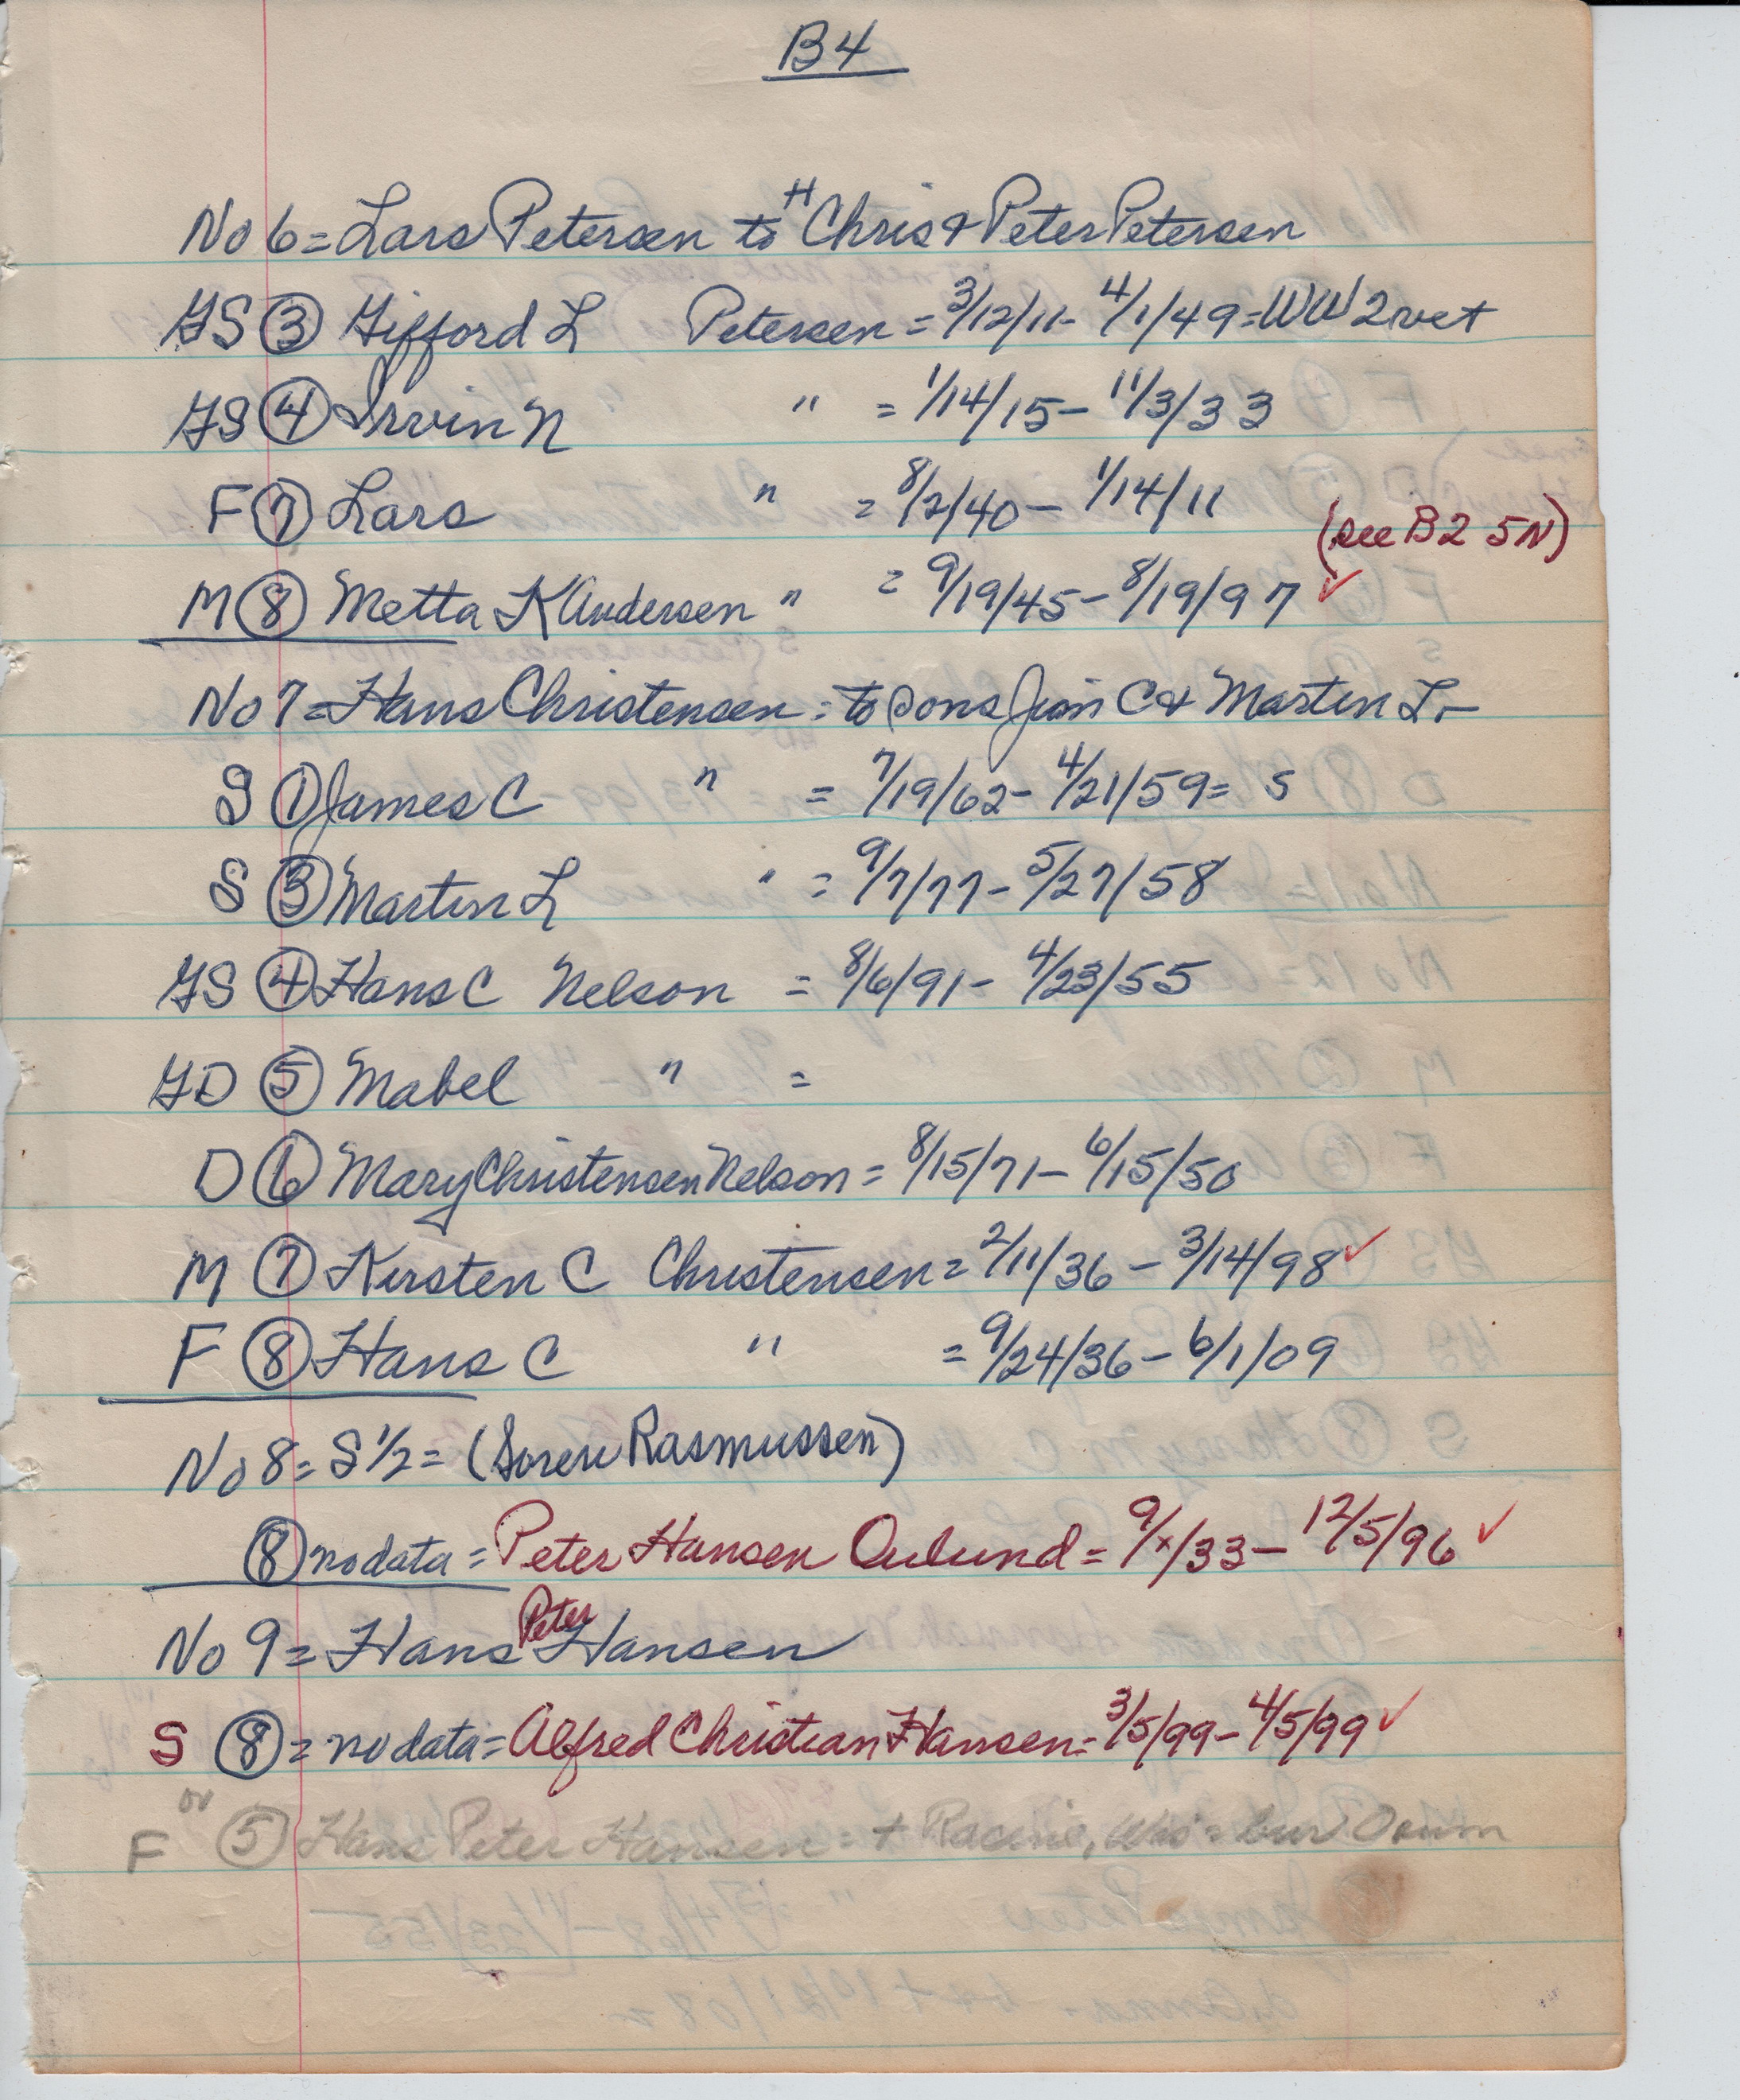 B4
No 6 = Lars Petersen to H Chris & Peter Petersen
GS ③ Gifford L Petersen = 3/12/11 - 4/1/49 = WW 2 vet
GS ④ Irvin N " = 1/14/15 - 11/3/33
F ⑦ Lars " = 8/2/40 - 1/14/11
(see B2 5N)
M ⑧ Metta K Andersen " = 9/19/45 - 8/19/97 ✓
No 7 = Hans Christensen = to sons Jim C & Martin L -
S ① James C " = 7/19/62 - 4/21/59 = S
S ③ Martin L " = 9/7/77 - 5/27/58
GS ④ Hans C Nelson = 8/6/91 - 4/23/55
GD ⑤ Mabel " =
D ⑥ Mary Christensen Nelson = 8/15/71 - 6/15/50
M ⑦ Kirsten C Christensen = 2/11/36 - 3/14/98 ✓
F ⑧ Hans C " = 9/24/36 - 6/1/09
No 8 = S 1/2 = (Soren Rasmussen)
⑧ no data = Peter Hansen = 9/x/33 - 12/5/96 ✓
No 9 = Hans Peter Hansen
S ⑧ = no data = Alfred Christian Hansen = 3/5/99 - 4/5/99 ✓
or
F ⑤ Hans Peter Hansen = + Racine, Wis = bur